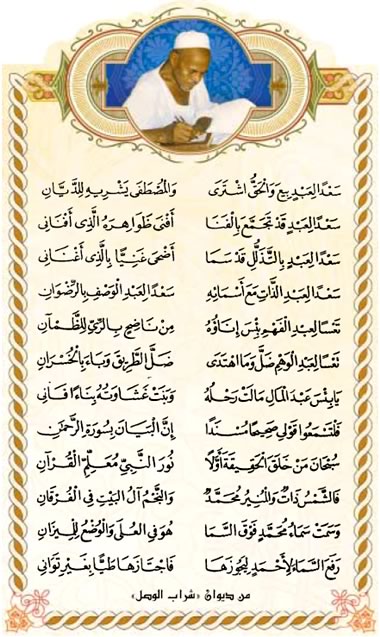 سَعْدًا لِعَبْدٍ بِيعَ وَالْحَقُّ اشْتَرَى وَالْمُصْطَفَى يَشْرِيهِ لِلدَّيَّانِ
سَعْدًا لِعَبْدٍ قَدْ تَجَمَّعَ بِالْفَنَا أَفْنَى ظَوَاهِرَهُ الَّذِي أَفْنَانِي
سَعْدًا لِعَبْدٍ بِالتَّذَلُّلِ قَدْ سَمَا أَضْحَى غَنِيًّا بِالَّذِي أَغْنَانِي
سَعْدًا لِعَبْدِ الذَّاتِ مَعَ أَسْمَائِهِ سَعْدًا لِعَبْدِ الْوَصْفِ بِالرِّضْوَانِ
تَعْسًا لِعَبْدِ الْفَهْمِ بِئْسَ إِنَاؤُهُ مِنْ نَاضِحٍ بِالرِّيِّ لِلظَّمْآنِ
تَعْسًا لِعَبْدِ الْوَهْمِ ضَلَّ وَمَا اهْتَدَى ضَلَّ الطَّرِيقَ وَبَاءَ بِالْخُسْرَانِ
يَا بِئْسَ عَبْدَ الْمَالِ مَالَتْ رَحْلُهُ وَبَنَتْ غَشَاوَتُهُ بِنَاءً فَانِي
فَلْتَسْمَعُوا قَوْلِي صَحِيحًا مُسْنَدًا إِنَّ الْبَيَانَ بِسُورَةِ الرَّحْمٰنِ
سُبْحَانَ مَنْ خَلَقَ الْحَقِيقَةَ أَوَّلًا نُورَ النَّبِيِّ مُعَلِّمِ الْقُرْآنِ
فَالشَّمْسُ ذَاتٌ وَالْمُنِيرُ مُحَمَّدٌ وَالنَّجْمُ آلُ الْبَيْتِ فِي الْفُرْقَانِ
وَسَمَتْ سَمَاءُ مُحَمَّدٍ فَوْقَ السَّمَا هُوَ فِي الْعُلَى وَالْوَضْعُ لِلْمِيزَانِ
رَفَعَ السَّمَاءَ لِأَحْمَدٍ لِيَجُوزَهَا فَاجْتَازَهَا طَيًّا بِغَيْرِ تَوَانِي
من ديوان «شراب الوصل»